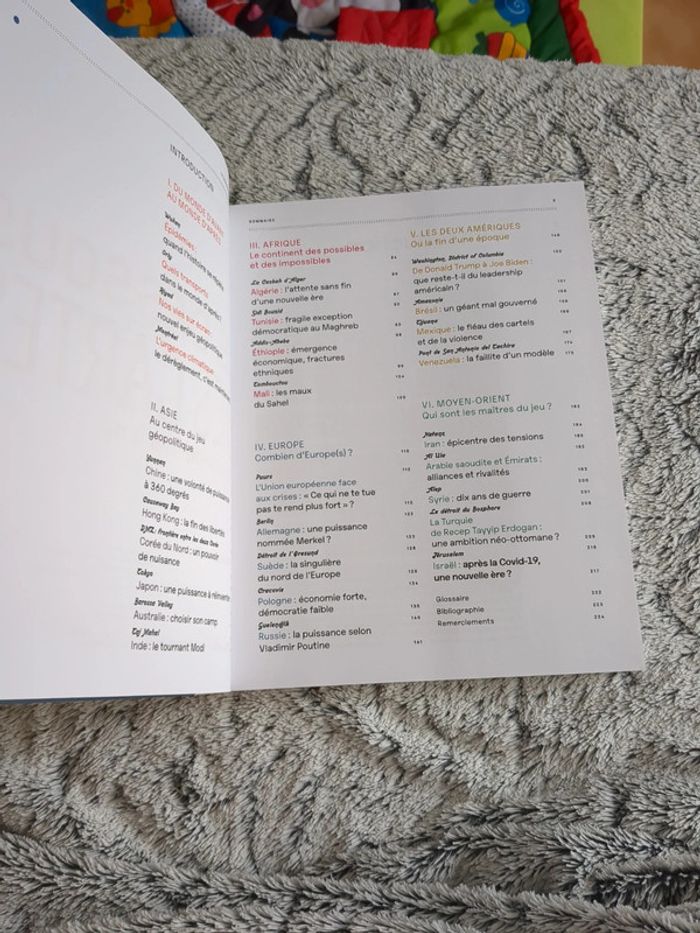 INTRODUCTION
I. DU MONDE D'AVANT
AU MONDE D'APRÈS
Wuhan
Épidémies :
quand l'histoire se répète
Orly
Quels transports
dans le monde d'après ?
Riyad
Nos vies sur écran :
nouvel enjeu géopolitique
Montréal
L'urgence climatique :
le dérèglement, c'est maintenant
II. ASIE
Au centre du jeu
géopolitique
Yunnan
Chine : une volonté de puissance
à 360 degrés
Causeway Bay
Hong Kong : la fin des libertés
DMZ, frontière entre les deux Corée
Corée du Nord : un pouvoir
de nuisance
Tokyo
Japon : une puissance à réinventer
Barossa Valley
Australie : choisir son camp
Taj Mahal
Inde : le tournant Modi
SOMMAIRE
III. AFRIQUE
Le continent des possibles
et des impossibles
La Casbah d'Alger
Algérie : l'attente sans fin
d'une nouvelle ère
Sidi Bouzid
Tunisie : fragile exception
démocratique au Maghreb
Addis-Abeba
Éthiopie : émergence
économique, fractures
ethniques
Tombouctou
Mali : les maux
du Sahel
IV. EUROPE
Combien d'Europe(s) ?
Passau
L'Union européenne face
aux crises : « Ce qui ne te tue
pas te rend plus fort » ?
Berlin
Allemagne : une puissance
nommée Merkel ?
Détroit de l'Øresund
Suède : la singulière
du nord de l'Europe
Cracovie
Pologne : économie forte,
démocratie faible
Guelendjik
Russie : la puissance selon
Vladimir Poutine
V. LES DEUX AMÉRIQUES
Ou la fin d'une époque
Washington, District of Columbia
De Donald Trump à Joe Biden :
que reste-t-il du leadership
américain ?
Amazonie
Brésil : un géant mal gouverné
Tijuana
Mexique : le fléau des cartels
et de la violence
Pont de San Antonio del Táchira
Venezuela : la faillite d'un modèle
VI. MOYEN-ORIENT
Qui sont les maîtres du jeu ?
Natanz
Iran : épicentre des tensions
Al Ula
Arabie saoudite et Émirats :
alliances et rivalités
Alep
Syrie : dix ans de guerre
Le détroit du Bosphore
La Turquie
de Recep Tayyip Erdogan :
une ambition néo-ottomane ?
Jérusalem
Israël : après la Covid-19,
une nouvelle ère ?
Glossaire
Bibliographie
Remerciements